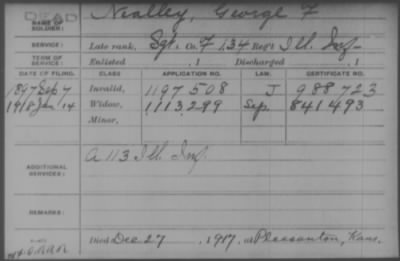 DEAD
NAME OF SOLDIER: Nealley, George F
SERVICE: Late rank, Sgt. Co. F, 134 Reg't Ill. Inf.
TERM OF SERVICE: Enlisted , 1 Discharged , 1
DATE OF FILING. CLASS APPLICATION NO. LAW. CERTIFICATE NO.
1897 Sep 7 Invalid, 1197508 J 988723
1918 Jan 14 Widow, 1113299 Sep. 841493
Minor,
ADDITIONAL SERVICES: A 113 Ill. Inf.
REMARKS:
Died Dec 27, 1917, at Pleasanton, Kans.